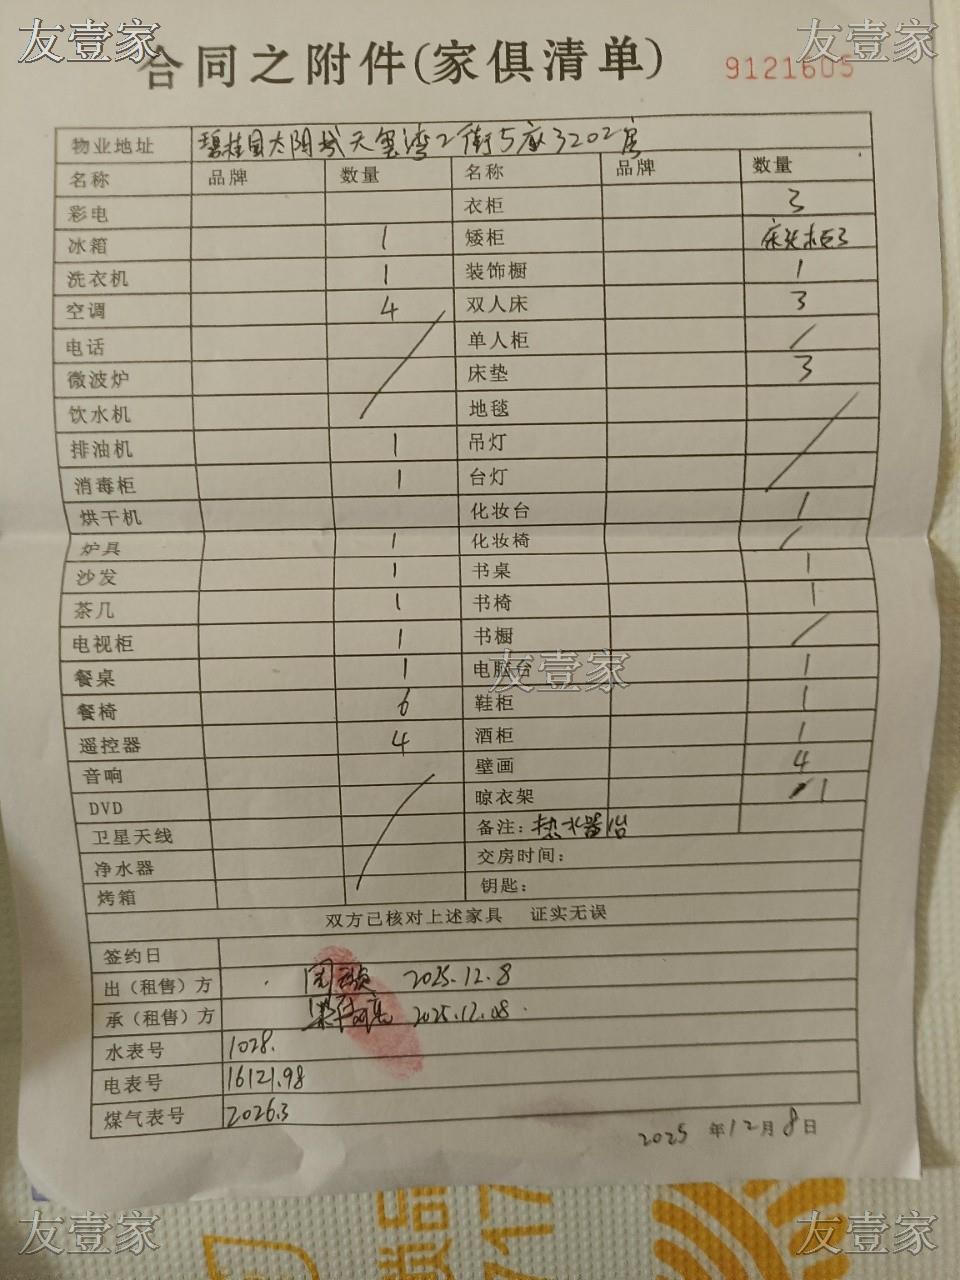 友壹家 友壹家
合同之附件(家俱清单) 9121605
物业地址 碧桂园太阳城天玺湾2街5座3202房
名称 品牌 数量 名称 品牌 数量
彩电 衣柜 3
冰箱 1 矮柜 床头柜3
洗衣机 1 装饰橱 1
空调 4 双人床 3
电话 单人柜 /
微波炉 床垫 3
饮水机 地毯
排油机 1 吊灯
消毒柜 1 台灯
烘干机 化妆台 1
炉具 1 化妆椅 /
沙发 1 书桌 1
茶几 1 书椅 1
电视柜 1 书橱 /
餐桌 1 电脑台 1
友壹家
餐椅 6 鞋柜 1
遥控器 4 酒柜 1
音响 壁画 4
DVD 晾衣架 1
卫星天线 备注：热水器
净水器 交房时间：
烤箱 钥匙：
双方已核对上述家具 证实无误
签约日
出（租售）方 2025.12.8
承（租售）方 2025.12.08.
水表号 1028.
电表号 16121.98
煤气表号 2026.3
2025 年12月8日
友壹家 友壹家